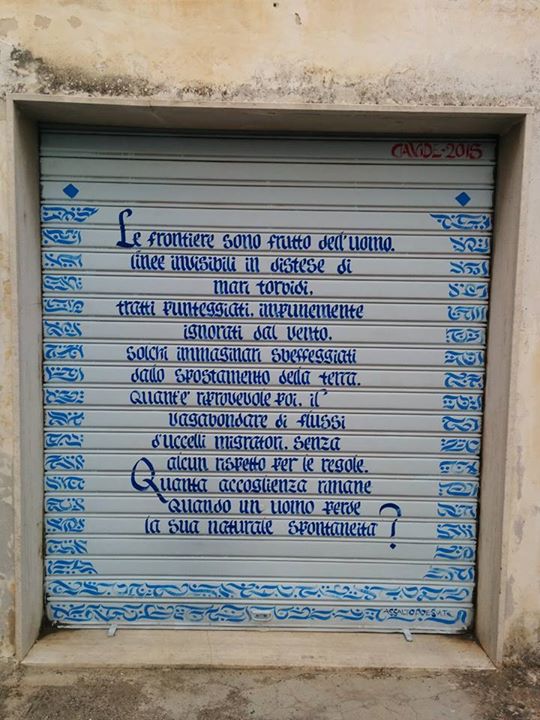 DAVIDE-2015
Le frontiere sono frutto dell'uomo.
linee invisibili in distese di
mari torbidi.
tratti punteggiati, impunemente
ignorati dal vento.
solchi immaginari sbeffeggiati
dallo spostamento della terra.
Quant'è riprovevole poi, il
vagabondare di flussi
d'uccelli migratori, senza
alcun rispetto per le regole.
Quanta accoglienza rimane
quando un uomo perde
la sua naturale spontaneità?